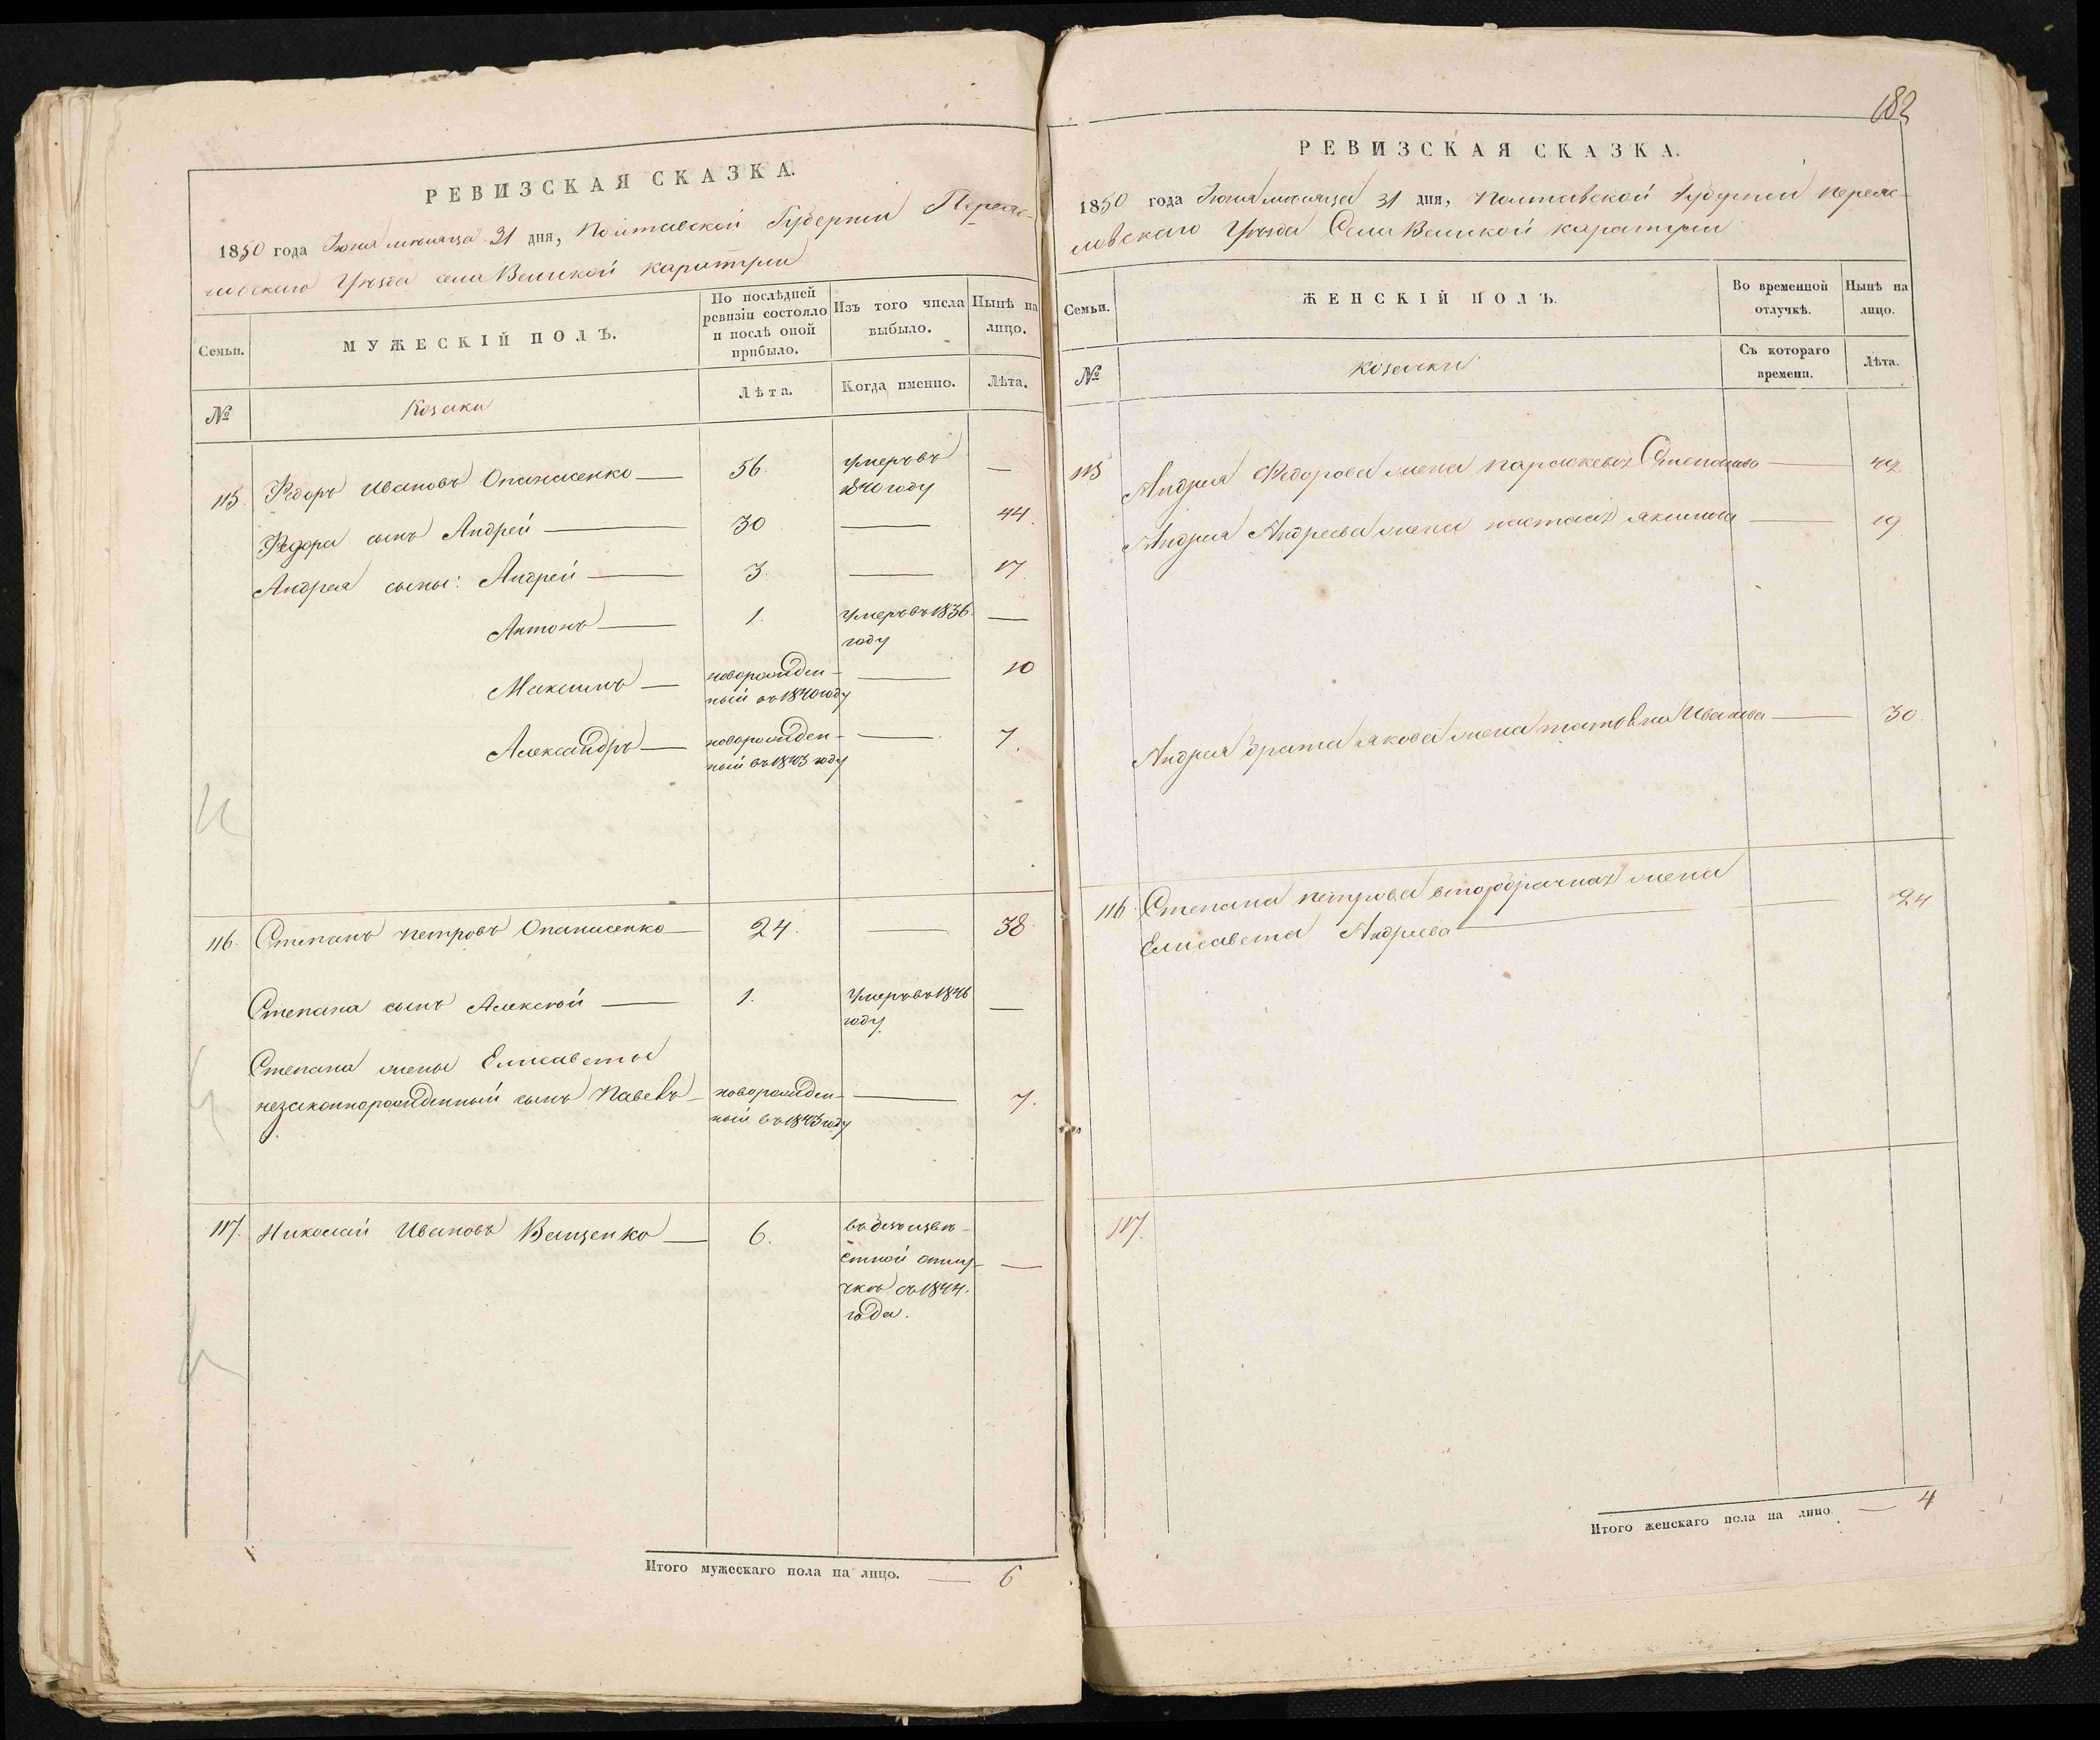 РЕВИЗСКАЯ СКАЗКА.
1850 года Іюня мѣсяца 31 дня, Полтавской Губерніи Переяс-
лавскаго Уѣзда села Великой каратули
Семьи.
МУЖЕСКІЙ ПОЛЪ.
По послѣдней ревизіи состояло и послѣ оной прибыло.
Изъ того числа выбыло.
Нынѣ на лицо.
№
Козаки
Лѣта.
Когда именно.
Лѣта.
115. Ѳедоръ Ивановъ Опанасенко — 56. умеръ въ —
1840 году
Ѳедора сынъ Андрей — 30 — 44.
Андрея сыны: Андрей — 3. — 17.
Антонъ — 1. умеръ въ 1836 —
году
Максимъ — новорожден- — 10
ный въ 1840 году
Александръ — новорожден- — 7.
ный въ 1843 году
116. Степанъ петровъ Опанасенко — 24. — 38
Степана сынъ Алексѣй — 1. умеръ въ 1846 —
году
Степана жены Елисаветы
незаконнорожденный сынъ Павелъ — новорожден- — 7.
ный въ 1843 году
117. Николай Ивановъ Ващенко — 6. въ безъизвѣ-
стной отлу- —
чкѣ съ 1844.
года.
Итого мужескаго пола на лицо. — 6
182
РЕВИЗСКАЯ СКАЗКА.
1850 года Іюня мѣсяца 31 дня, Полтавской Губерніи переяс-
лавскаго Уѣзда Села Великой каратули
Семьи.
ЖЕНСКІЙ ПОЛЪ.
Во временной отлучкѣ.
Нынѣ на лицо.
№
козачки
Съ котораго времени.
Лѣта.
115 Андрея Ѳедорова жена параскевія Степанова — 42
Андрея Андреева жена настасія якимова — 19
Андрея брата якова жена татьяна Иванова — 30.
116. Степана петрова второбрачная жена — 24
Елисавета Андреева —
117.
Итого женскаго пола на лицо. — 4